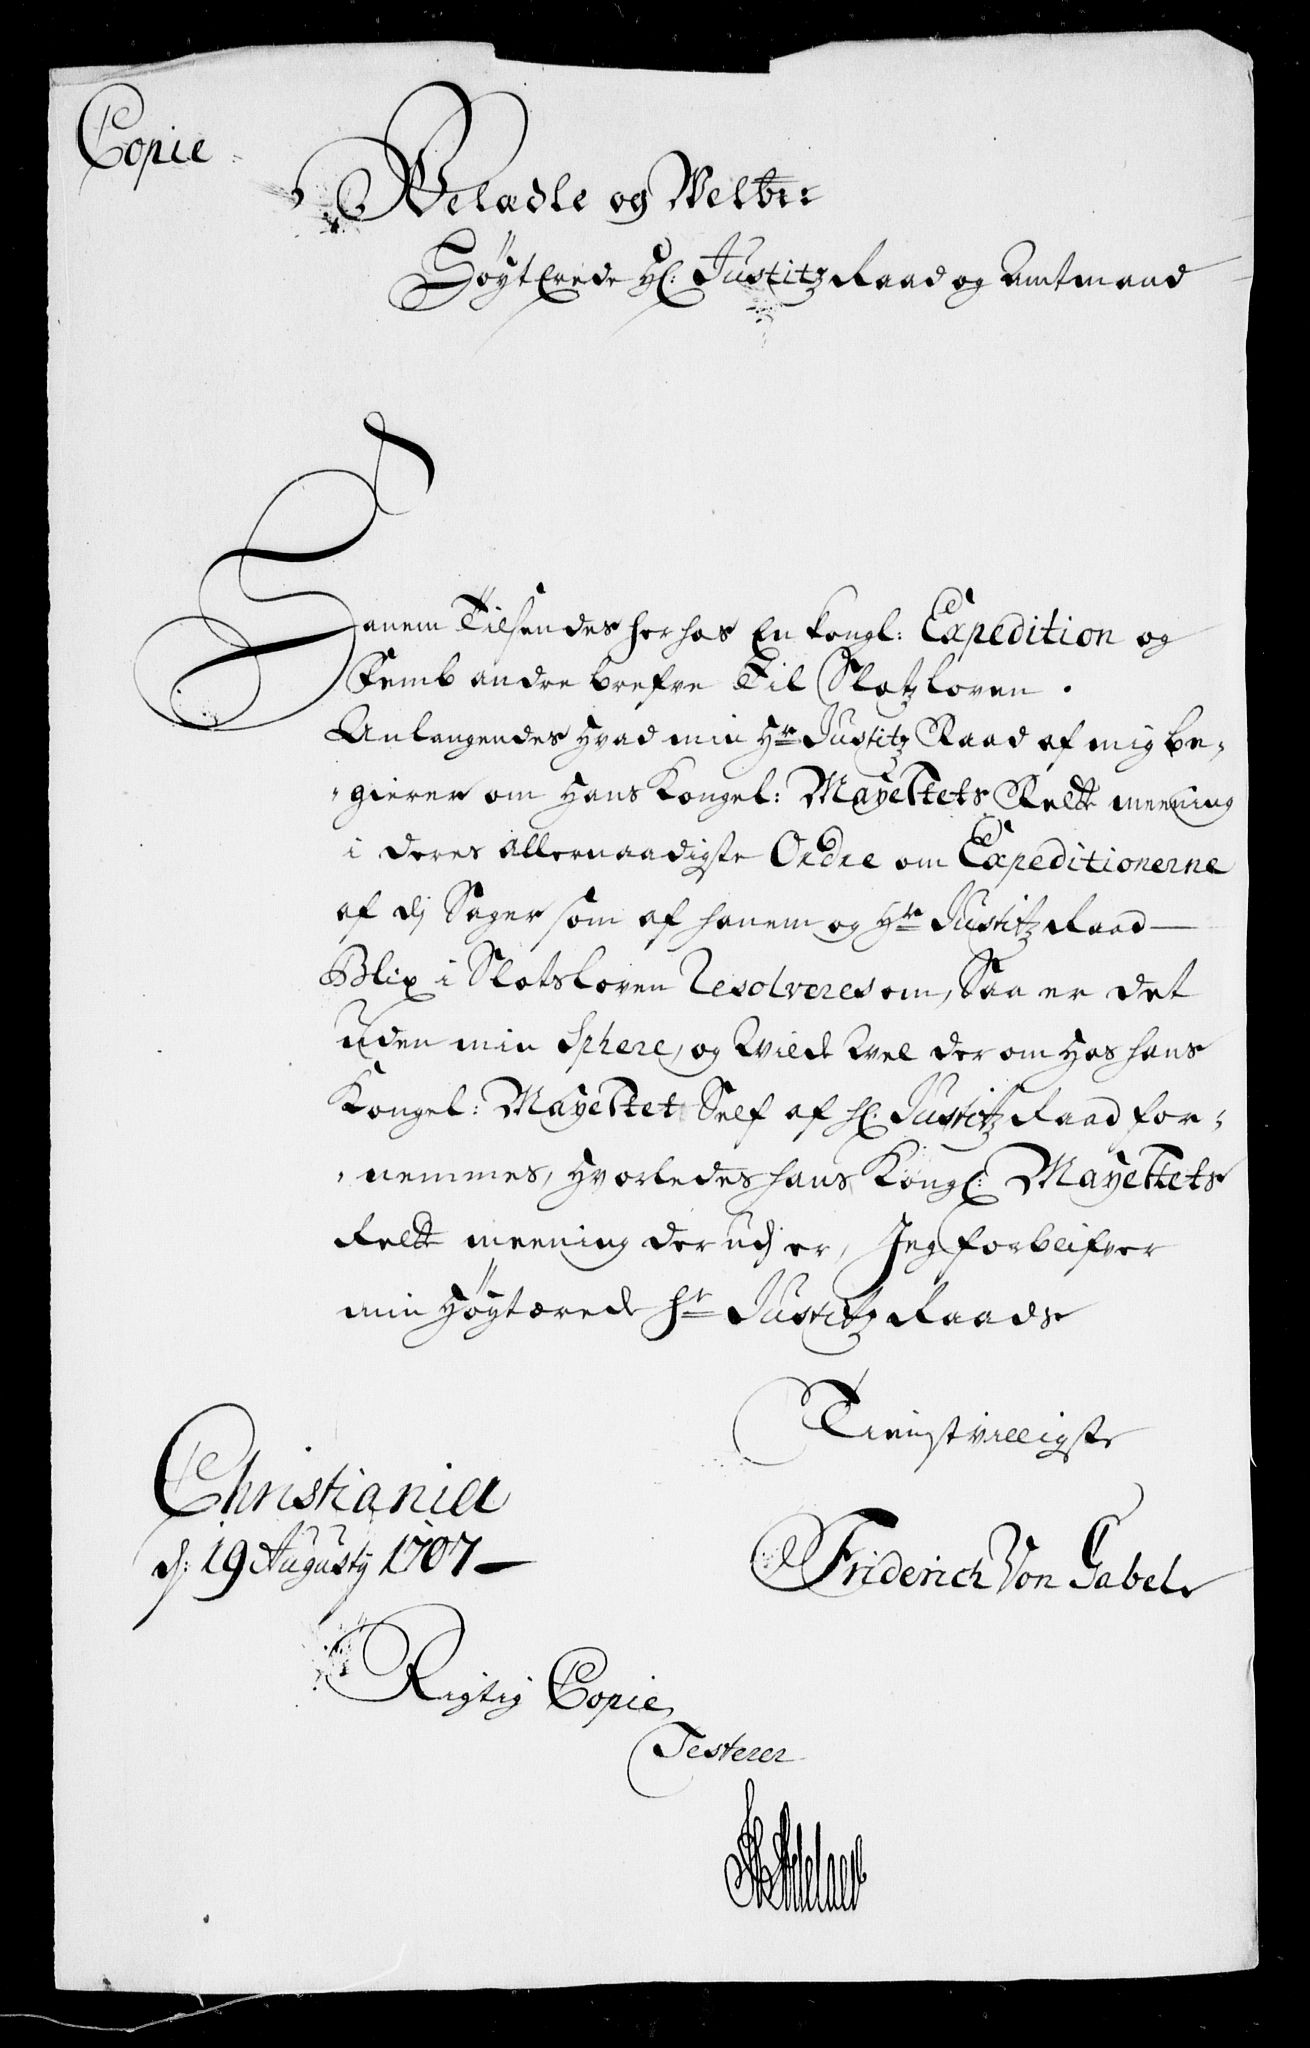 Copie
Velædle og Welbr:
Høyt Erede Hl: Justitz Raad og Amtmand
Hanem Tilsendes her hos En kongl: Expedition og
Femb andre brefve Til Slotzloven.
Anlangendes Hvad min Hr Justitz Raad af mig be-
gierer om Hans Kongel: Mayesttets Rette meening
i deres allernaadigste Ordre om Expeditionerne
af dj Sager som af hanem og Hr Justitz Raad
Blix i Slotsloven Resolveres om, Saa er det
uden min Sphere, og Wilde Wel der om Hos hans
Kongel: Mayesttet Self af Hl. Justitz Raad for-
nemmes, Hvorledes hans Kongl: Mayesttets
Rette meening der udj er, Jeg forblifver
min Høytærede Hr Justitz Raads
Tienstvilligste
Christiania
d: 19 Augusty 1707
Friderich Von Gabel
Rigtig Copie
Testerer